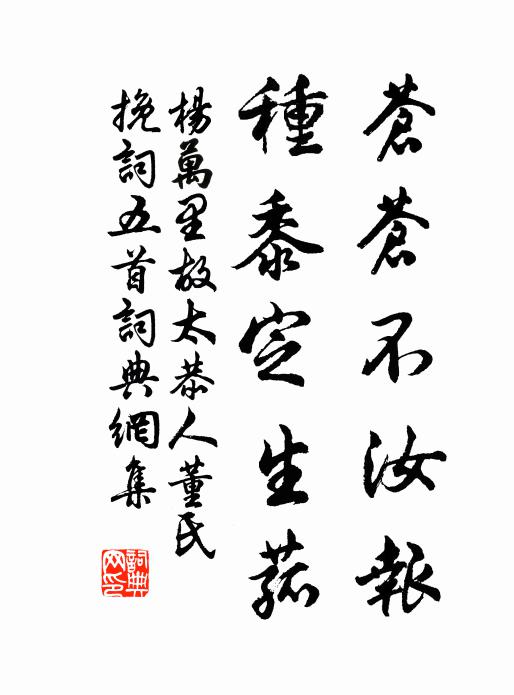 蒼蒼不汝報
種黍定生菰
楊萬里故太恭人董氏
挽詞五首詞典網集
詞典
网印